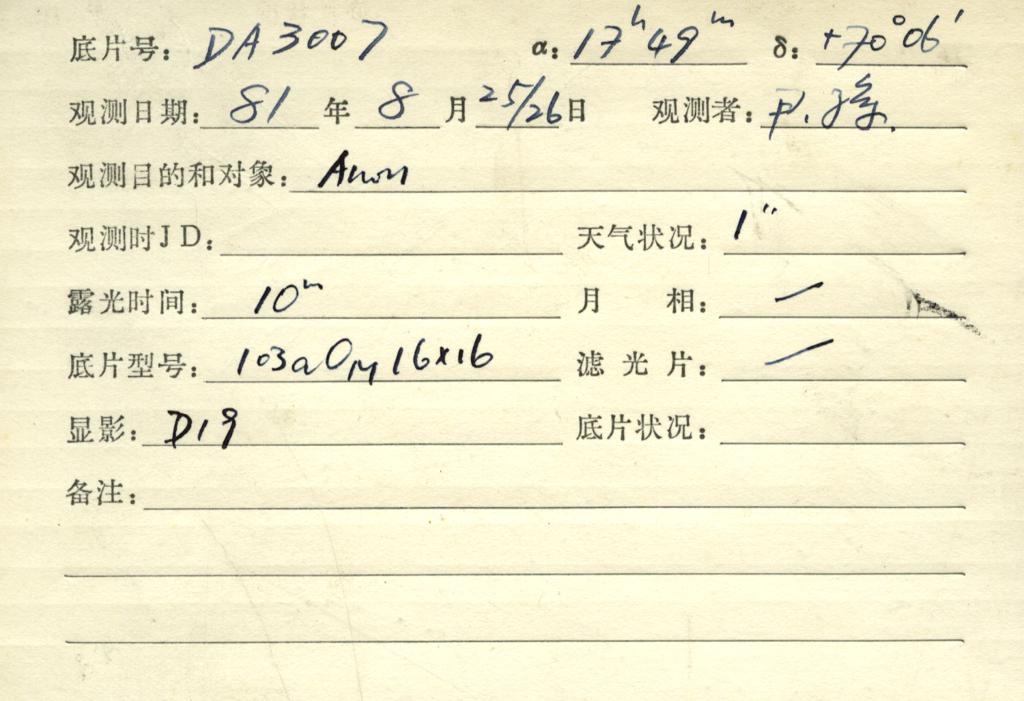 底片号: DA3007 α: 17h 49m δ: +70°06′
观测日期: 81 年 8 月 25/26 日 观测者:
观测目的和对象: Anon
观测时JD: 天气状况: 1″
露光时间: 10m 月 相: —
底片型号: 103aO 16x16 滤光片: —
显影: D19 底片状况:
备注: